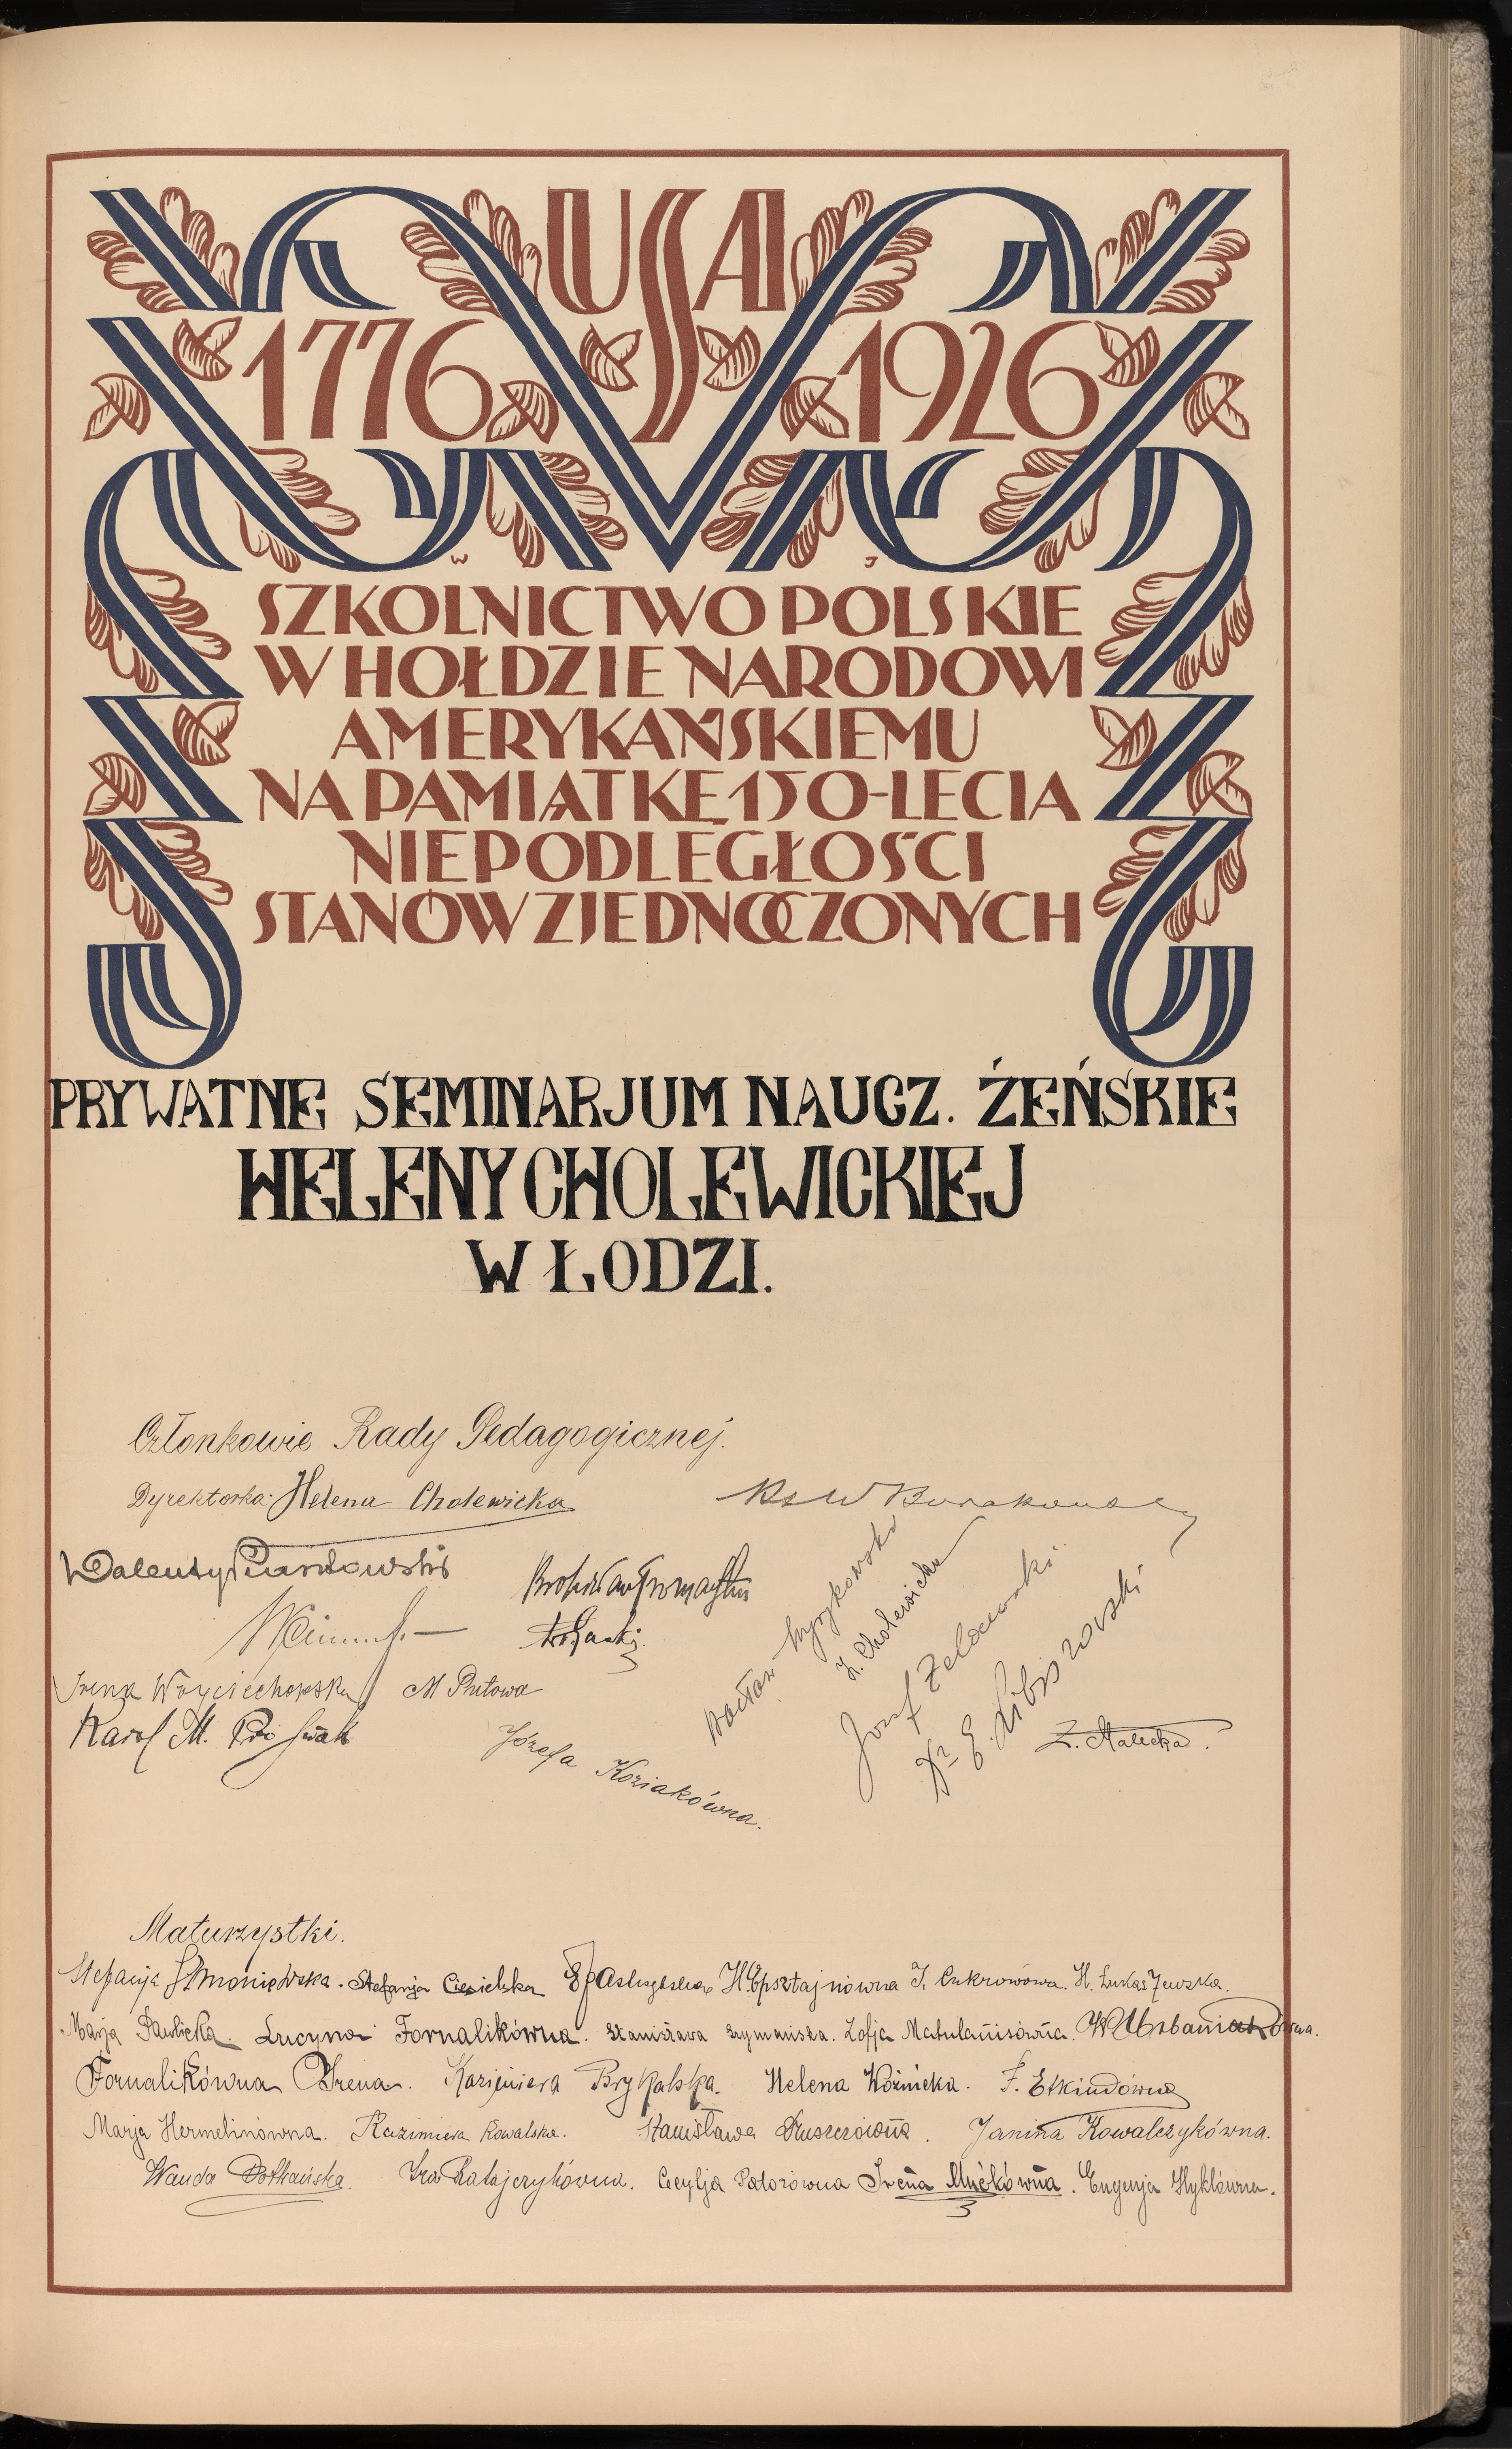 USA
1776 1926
W J
SZKOLNICTWO POLSKIE
W HOŁDZIE NARODOWI
AMERYKAŃSKIEMU
NA PAMIĄTKĘ 150-LECIA
NIEPODLEGŁOŚCI
STANÓW ZJEDNOCZONYCH
PRYWATNE SEMINARJUM NAUCZ. ŻEŃSKIE
HELENY CHOLEWICKIEJ
W ŁODZI.
Członkowie Rady Pedagogicznej.
Dyrektorka: Helena Cholewicka
Ks W
Walenty
Irena Wojciechowska M Prutowa
Karol M.
Józefa Koziakówna.
Wacław
H. Cholewicka
Józef Zelocewski
Dr E.
Z. Malicka.
Maturzystki.
Stefanja Stefanja Ciesielska H. Epsztajnówna I. Cukrowówna. H. Łukaszewska.
Marja Pawlicka. Lucyna Fornalikówna. Stanisława Szymańska. Zofja Matulanisówna. W. Urbaniakówna.
Fornalikówna Irena. Kazimiera Brykalska. Helena Woźnicka. F. Etkindówna
Marja Hermelinówna. Kazimiera Kowalska. Stanisława Janina Kowalczykówna.
Wanda Ratajczykówna. Cecylja Patorówna Irena Mućkówna. Eugenja Hyklówna.